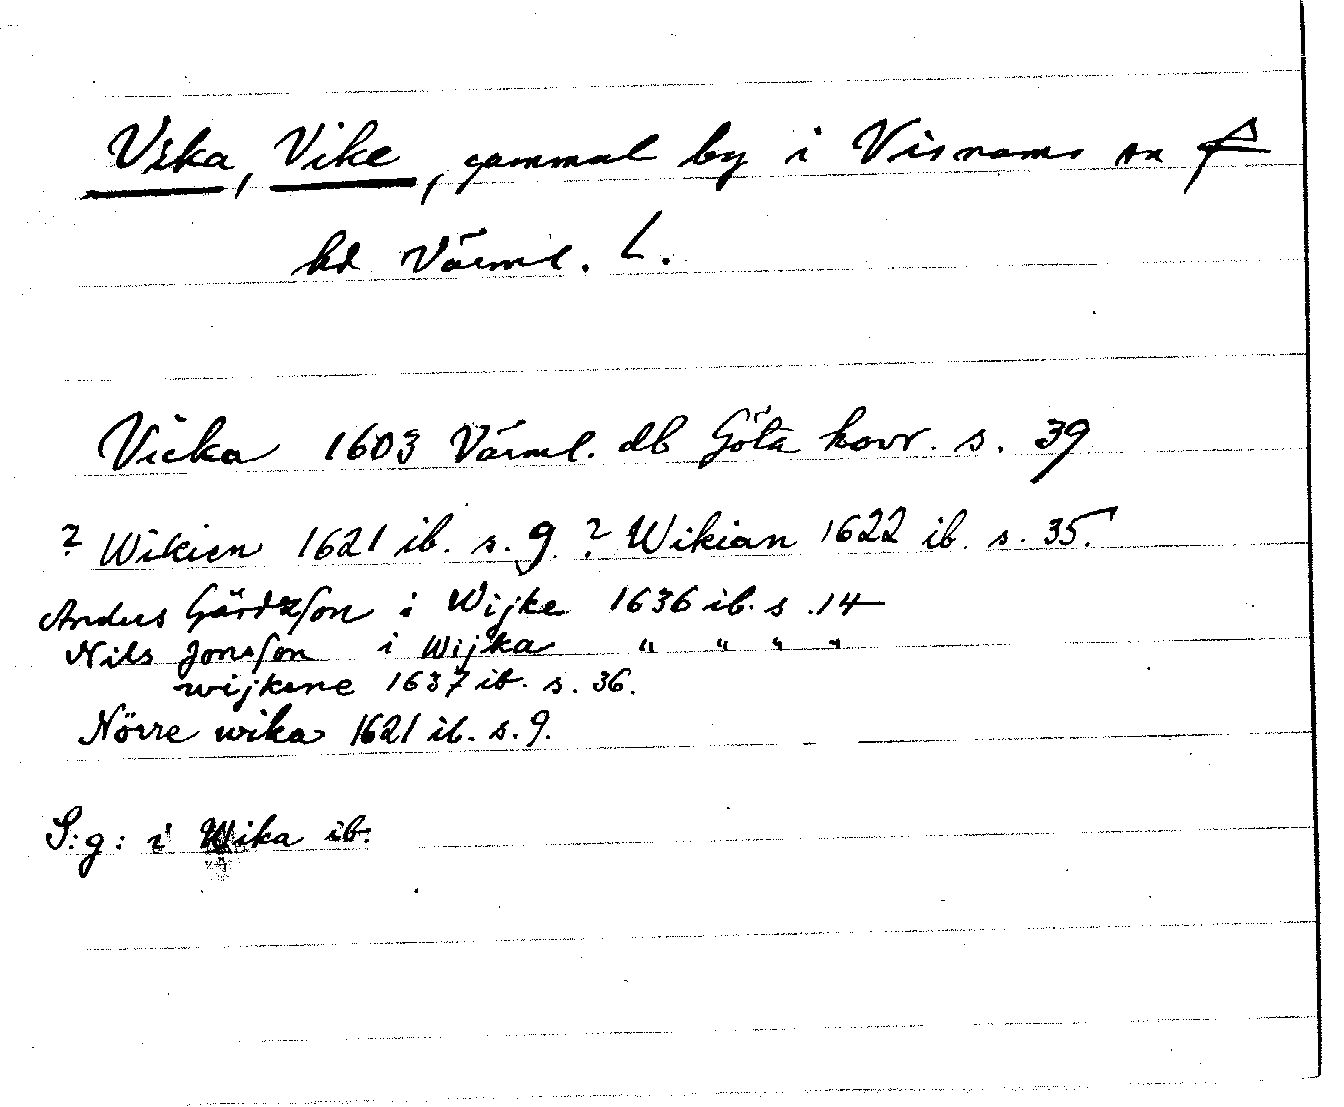 Vika, Vike, gammal by i Visnums sn
hd Värml. L.
Vicka 1603 Värml. db Göta hovr. s. 39
? Wikien 1621 ib. s. 9. ? Wikian 1622 ib. s. 35.
Anders Gärdzson i Wijke 1636 ib. s. 14
Nils Jonsson i Wijka " " " "
wijkene 1637 ib. s. 36.
Nörre wika 1621 ib. s. 9.
S:g: i Wika ib.